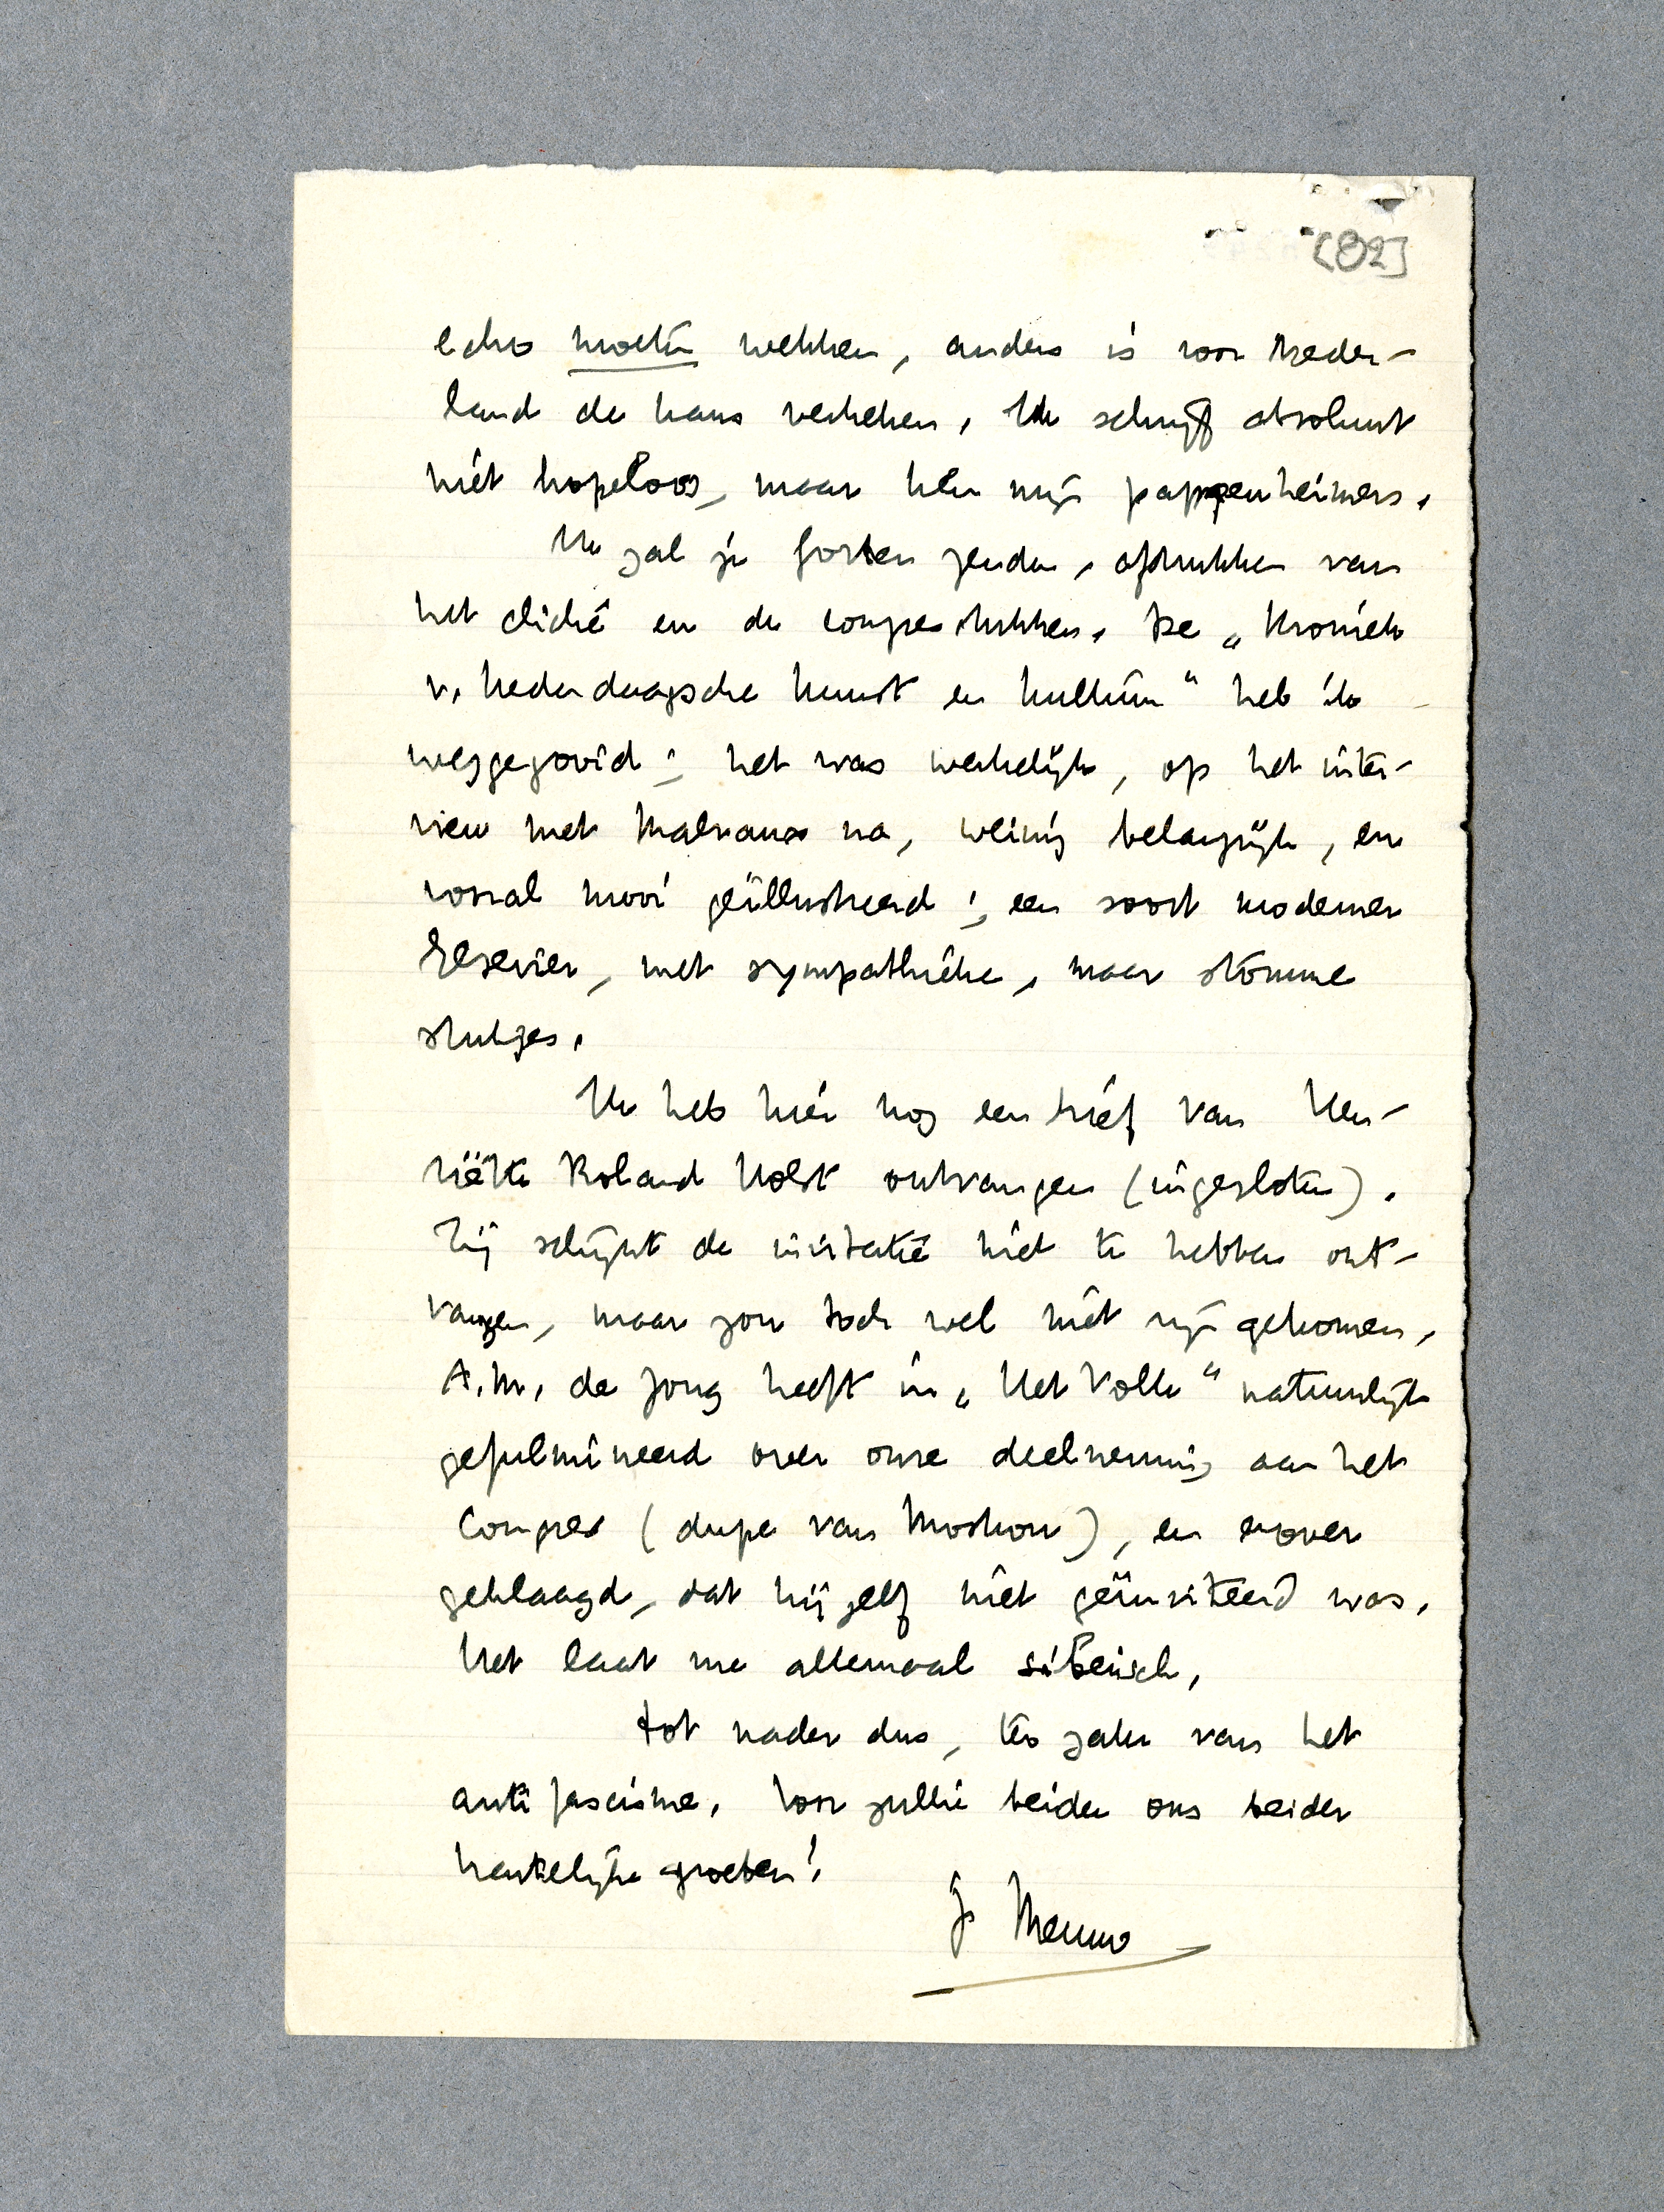 [82]
echo moeten wekken, anders is voor Neder-
land de kans verkeken. Ik schrijf absoluut
niet hopeloos, maar ken mijn pappenheimers.
Ik zal je foto's zenden, afdrukken van
het cliché en de congresstukken. De „Kroniek
v. hedendaagsche kunst en kultuur" heb ik
weggegooid; het was werkelijk, op het inter-
view met Malraux na, weinig belangrijk, en
vooral mooi geïllustreerd; een soort moderner
Elsevier, met sympathieke, maar stomme
stukjes.
Ik heb hier nog een brief van Hen-
riëtte Roland Holst ontvangen (ingesloten).
Zij schijnt de invitatie niet te hebben ont-
vangen, maar zou toch wel niet zijn gekomen.
A.M. de Jong heeft in „Het Volk" natuurlijk
gefulmineerd over onze deelneming aan het
congres (dupe van Moskou), en erover
geklaagd, dat hij zelf niet geïnviteerd was.
Het laat me allemaal siberisch.
Tot nader dus, ter zake van het
antifascisme. Voor jullie beiden ons beider
hartelijke groeten!
Je Menno